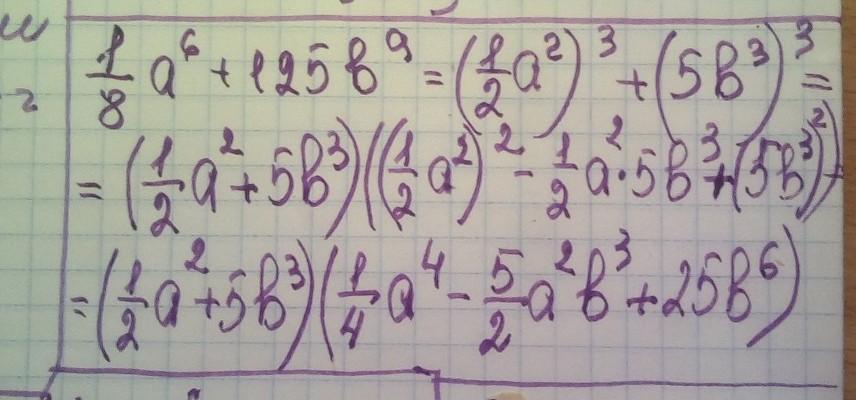 ш
г
1/8 a⁶ + 125b⁹ = (1/2 a²)³ + (5b³)³ =
= (1/2 a² + 5b³)((1/2 a²)² - 1/2 a² · 5b³ + (5b³)²)
= (1/2 a² + 5b³)(1/4 a⁴ - 5/2 a²b³ + 25b⁶)